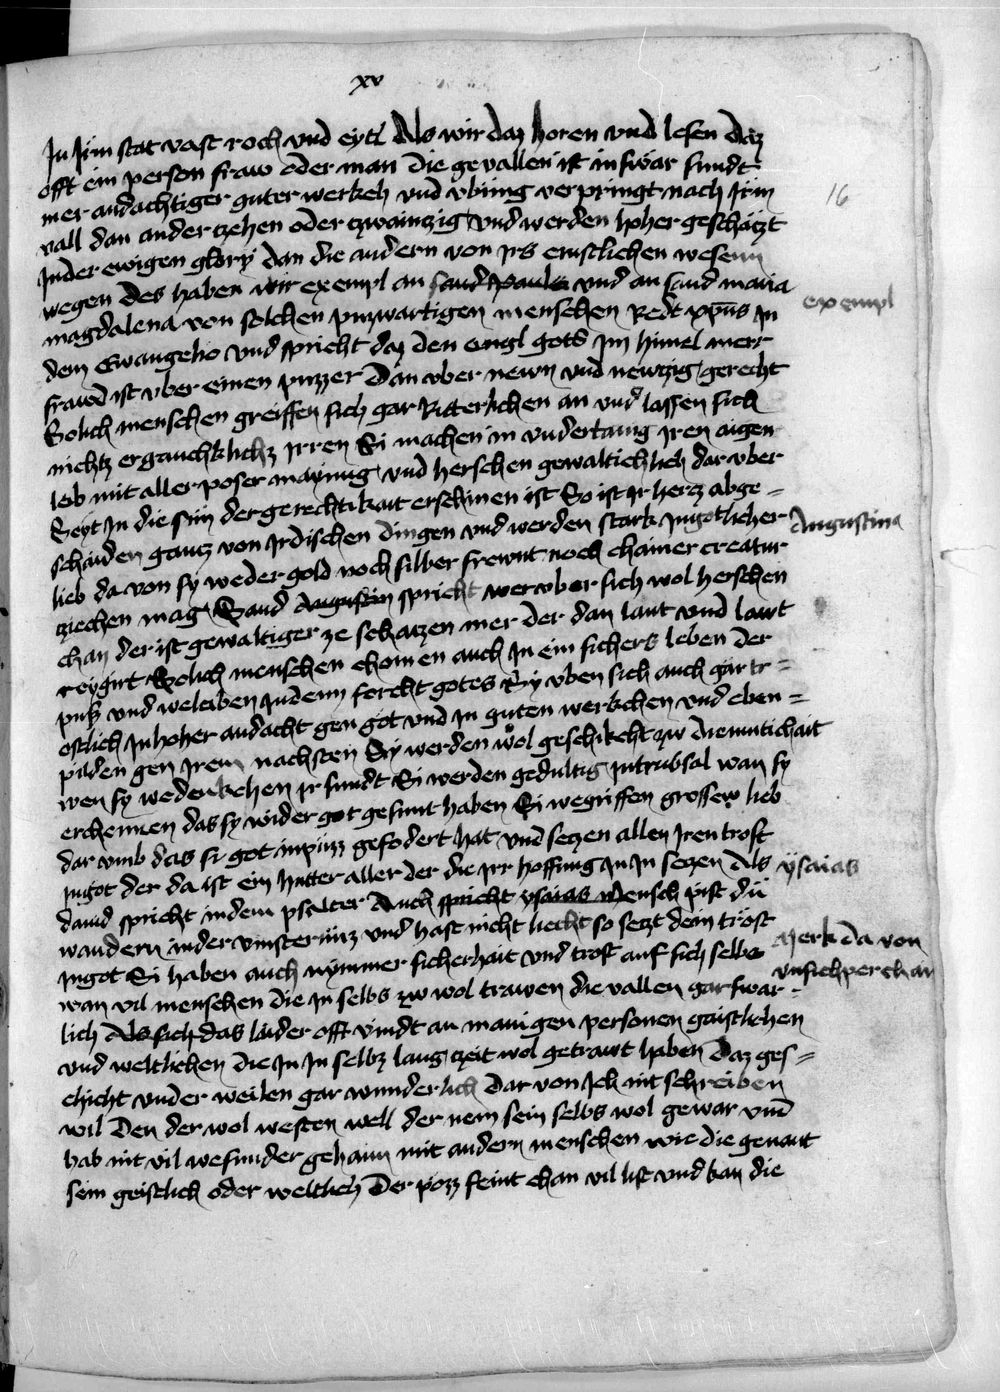 xv
In Jrm stat vast roch vnd eytl Als wir daz horen vnd lesen daz
offt ein person fraw oder man die gevallen ist in swär sundt
mer andachtiger guter werkch vnd vbung verpringt nach Jrm
16
vall dan ander zehen oder zwainzig vnd werden hoher geschäczt
Jnder ewigen glory dan die andern von Jrs ernstlichen wesenn
wegen Des haben wir exempl an sand Pauls vnd an sand maria
exempl
magdalena von solchen puzwartigen menschen Redt xpūs Jn
dem Ewangelio vnd spricht daz den engl gots Jm himel merr
frawd ist vber einen puzzer Dan vber newn vnd newzig gerecht
Solich menschen greiffen sich gar Ritterlichen an vnd lassen sich
nichtz ergauchklichz Jrren Si machen in vndertanig Jren aigen
leib mit aller poser maynug vnd herschen gewaltichlich dar vber
Seyt Jn die sun der gerechtikait erschinen ist So ist Jr hercz abge=
schaiden gancz von Jrdischen dingen vnd werden stark Jngotlicher
Augustinus
lieb da von sy weder gold noch silber frewnt noch chainer creatur
ziechen mag Sand Augustin spricht wer vber sich wol herschen
chan der ist gewaltiger ze schaczen mer der dan laut vnd lawt
reygirt Solich menschen chomen auch Jn ein sichers leben der
puss vnd weleiben Jndenn forcht gotes Sy vben sich auch gar tr=
ostlich Jn hoher andacht gen got vnd Jn guten werkchen vnd eben=
pilden gen Jrem nachsten Sy werden wol geschikcht zw diemutichait
wen sy wedenkchen jr sundt Si werden gedultig in trubsal wan sy
erchennen das sy wider got gesunt haben Si wegriffen grossew lieb
dar vmb das si got in puzz gefodert hat vnd seczen allen Jren trost
Jngot der da ist ein hutter aller der die jrr hoffnug Jn Jn seczen Als
ysaias
dauid spricht in dem psalter Auch spricht ysaias Mensch pist dü
wandern in der vinsternuz vnd hast nicht liecht so seczt dein trost
Merk da von
Jngot Si haben auch nymmer sicherhait vnd trost auf sich selbs
vnsichperchait
wan vil menschen die Jn selbs zw wol trawen die vallen gar swar=
lich Als sich das laider offt vindt an manigen personen gaistlichen
vnd weltlichen die Jn Jn selbz lang zeit wol getrawt haben Daz ges=
chicht vnder weilen gar wunderlich Dar von Jch nit schreiben
wil Den der wol westen well der nem sein selbs wol gewar vnd
hab nit vil wesunder gehaim mit andern menschen wie die genant
sein geistlich oder weltlich Der pözz feint chan vil list vnd kan die